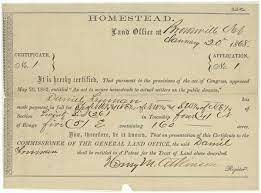 HOMESTEAD.
Land Office at Brownville Neb
January 20th 1868.
CERTIFICATE,
No. 1
APPLICATION,
No. 1
It is hereby certified, That pursuant to the provisions of the act of Congress, approved
May 20, 1862, entitled "An act to secure homesteads to actual settlers on the public domain,"
Daniel Freeman has
made payment in full for
Section Twenty Six (26) in Township Four (4) N
of Range Five (5) E containing 160 acres.
Now, therefore, be it known, That on presentation of this Certificate to the
COMMISSIONER OF THE GENERAL LAND OFFICE, the said Daniel
Freeman shall be entitled to a Patent for the Tract of Land described
Henry M. Atkinson
Register.